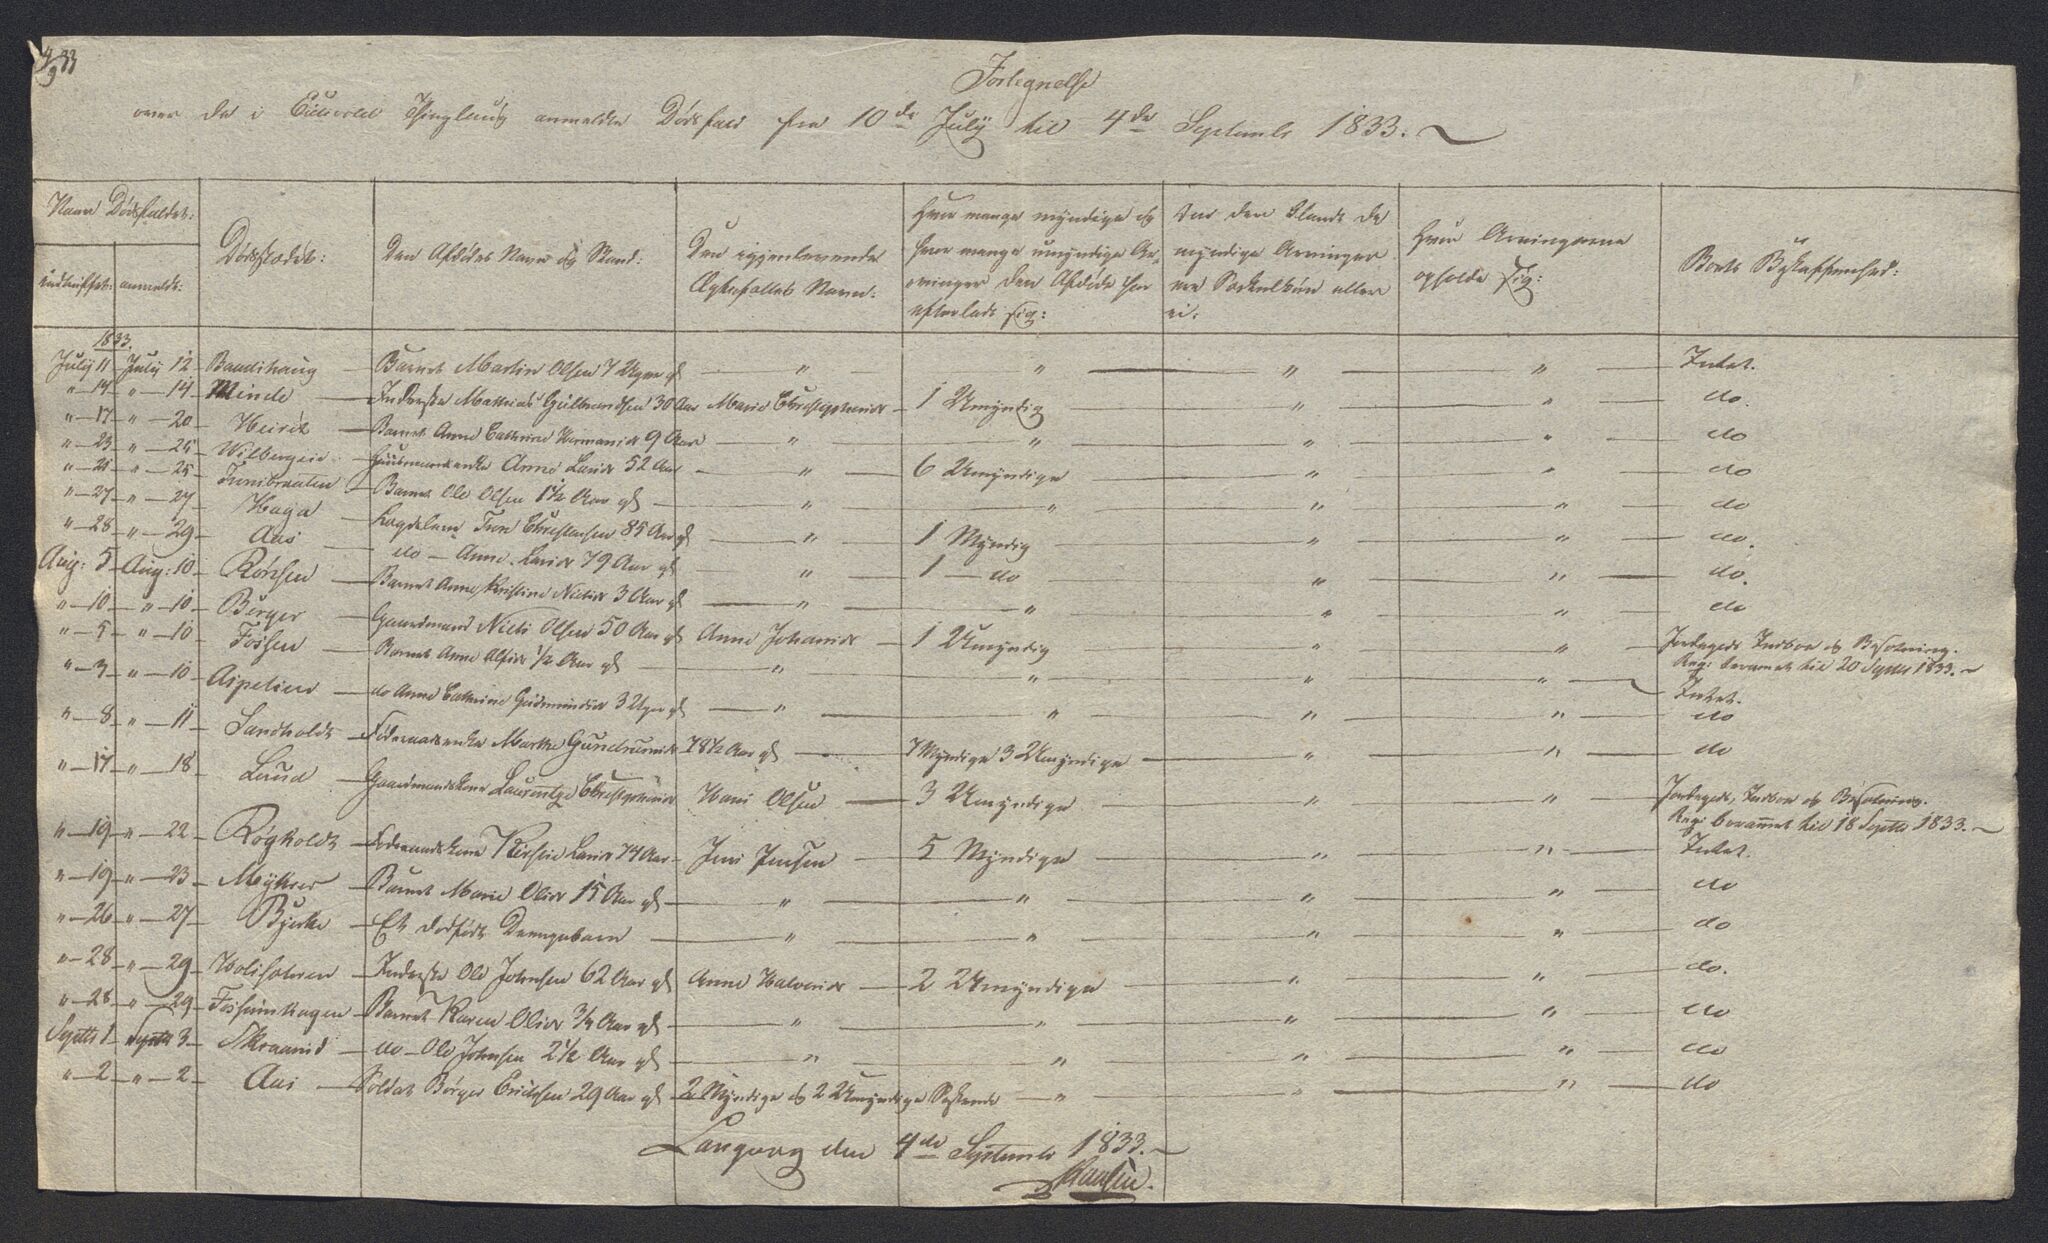 4/9 33
Fortegnelse
over de i Eidsvold Thinglaug anmeldte Dødsfald fra 10de July til 4de Septembr 1833.
Naar Dødsfaldet:
indtruffet: anmeldt:
Dødsstedet:
Den Afdødes Navn og Stand:
Den igjenlevende Ægtefælles Navn:
Hvor mange myndige og hvor mange umyndige Arvinger den Afdøde har efterladt sig:
de myndige Arvinger ere Søskendbørn eller ei:
Hvor Arvingerne opholde sig:
Boets Beskaffenhed:
1833.
July 11 July 12 Baadshaug Barnet Martin Olsen 7 Uger gl " " " " Intet.
" 14 " 14 Minde Inderste Mathias Gulbrandsen 30 Aar Marie Christophersdr 1 Umyndig " " do.
" 17 " 20 Barnet Anne Cathrine Hermansdr 9 Aar " " " " do
" 23 " 25 Wilbergeie Huusmandsenke Anne Larsdr 52 Aar " 6 Umyndige " " do
" 21 " 25 Barnet Ole Olsen 1½ Aar gl " " " " do
" 27 " 27 Haga Lægdslem Christensen 85 Aar gl " 1 Myndig " " do.
" 28 " 29 Aas do Anne Larsdr 79 Aar gl " 1 do " " do.
Aug: 5 Aug: 10 Rønsen Barnet Anne Kristine Nielsdr 3 Aar gl " " " " do
" 10 " 10 Berger Gaardmand Niels Olsen 50 Aar gl Anne Johansdr 1 Umyndig " " Jordegods Indboe og Besætning.
Reg: berammet til 20 Septbr 1833.
" 5 " 10 Fossen Barnet Anne Olsdr ½ Aar gl " " " " Intet.
" 3 " 10 do Anne Cathrine Gudmundsdr 3 Uger gl " " " " do
" 8 " 11 Sandholdt Føderaadsenke Marthe Gundersdr 78½ Aar gl 7 Myndige 3 Umyndige " " do
" 17 " 18 Lund Gaardmandskone Laurentze Christophersdr Hans Olsen 3 Umyndige " " Jordegods, Indboe og Besætning.
Reg: berammet til 18 Septbr 1833.
" 19 " 22 Røgholdt Føderaadskone Kirsten Larsdr 74 Aar Jens Jensen 5 Myndige " " Intet.
" 19 " 23 Myhrer Barnet Marie Olsdr 15 Aar gl " " " " do
" 26 " 27 Bjerke Et dødfødt Drengebarn " " " " do
" 28 " 29 Inderste Ole Johnsen 62 Aar gl Anne Halvorsdr 2 Umyndige " " do.
" 28 " 29 Barnet Karen Olsdr ¾ Aar gl " " " " do
Septbr 1 Septbr 3 do Ole Johnsen 2½ Aar gl " " " " do
" 2 " 2 Aas Soldat Børger Erichsen 29 Aar gl 2 Myndige og 2 Umyndige Søskende " " " do
Langvog den 4de Septembr 1833.